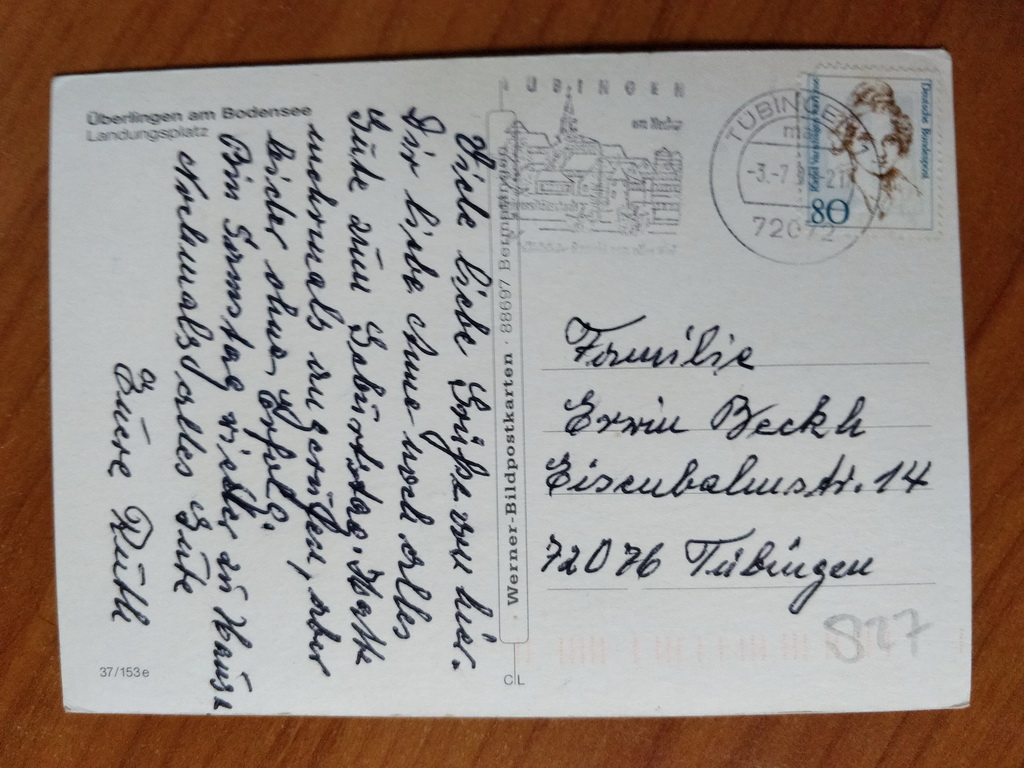 Überlingen am Bodensee
Landungsplatz
Viele liebe Grüße von hier.
Dir liebe Anne noch alles
Gute zum Geburtstag. Hatte
mehrmals angerufen, aber
leider ohne Erfolg.
Bin Samstag wieder zu Hause
Nochmals alles Gute
Euere Ruth
37/153e
Werner-Bildpostkarten · 88697 Bermatingen
C L
TÜBINGEN
am Neckar
TÜBINGEN
-3.-7
-21
72072
Deutsche Bundespost
80
Familie
Erwin Beckh
Eisenbahnstr. 14
72076 Tübingen
827